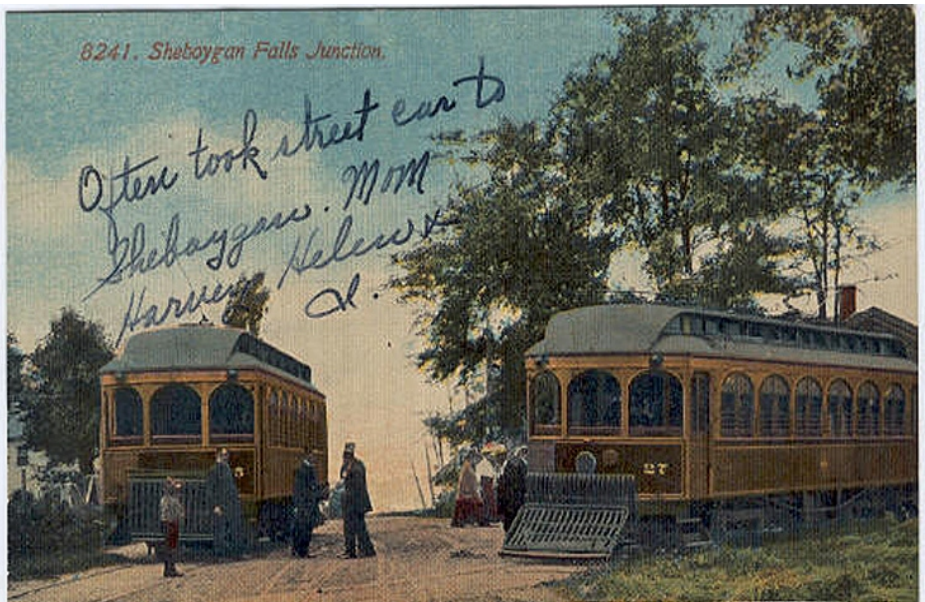 8241. Sheboygan Falls Junction.
Often took street car to
Sheboygan. Mom
Harvey Helen &
I.
27